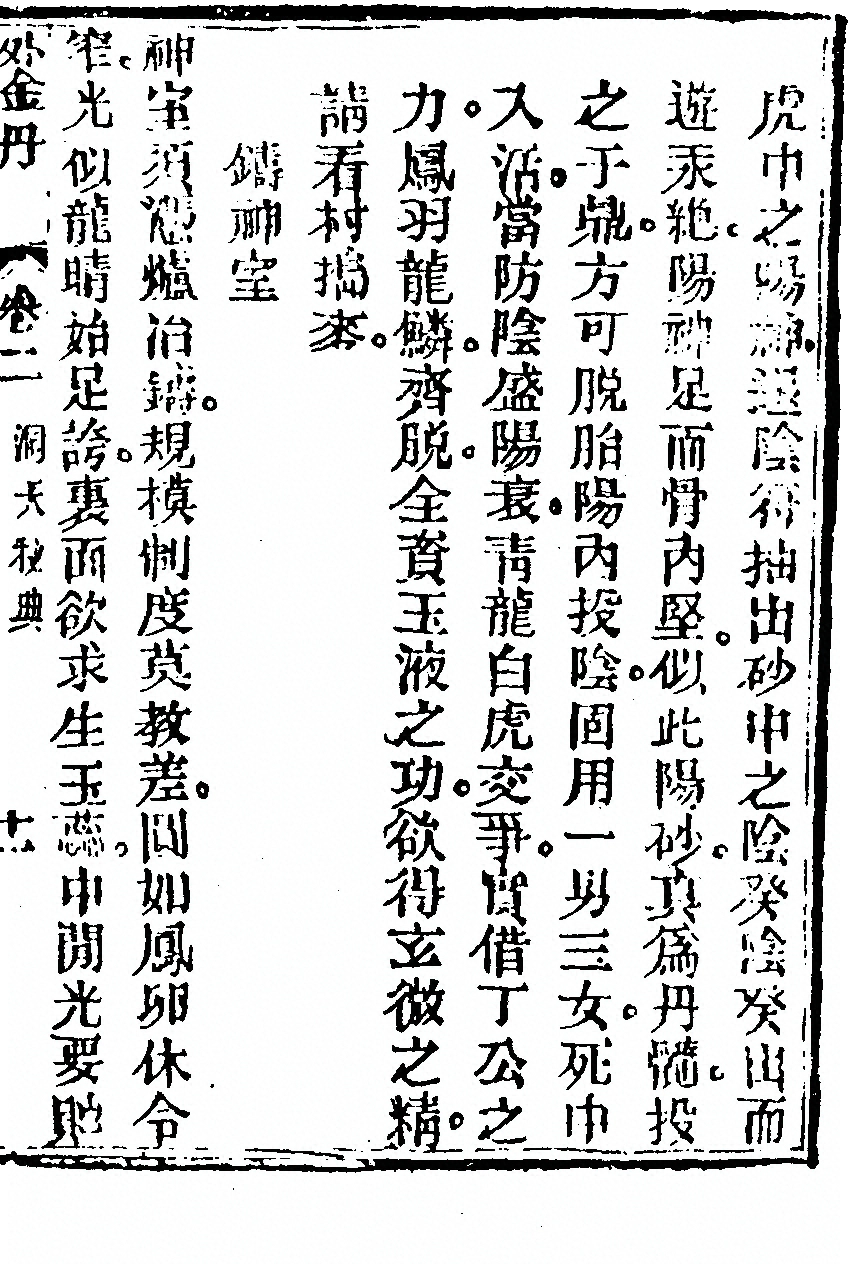 虎中之陽神。退陰符抽出砂中之陰癸陰癸出而
遊汞絶。陽神足而骨內堅。似此陽砂。真為丹髓。投
之于鼎。方可脱胎陽內投陰。固用一男三女。死中
入活。當防陰盛陽衰。青龍白虎交爭。實借丁公之
力。鳳羽龍鱗。齊脱。全資玉液之功。欲得玄微之精。
請看村搗來。
鑄神室
神室須慿爐冶鑄。規模制度莫教差。圓如鳳卵休令
窄。光似龍睛始足誇。裏面欲求生玉蕊。中間光要貯
外金丹 卷二 洞天秘典 十一